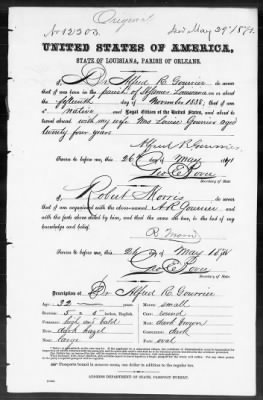 Original
No 12303 Iss May 29th 1871.
UNITED STATES OF AMERICA,
STATE OF LOUISIANA, PARISH OF ORLEANS.
I, Dr Alfred R. Gourrier, do swear
that I was born in the parish of St James Louisiana on the
fifteenth day of November 1838; that I am
a native and Loyal Citizen of the United States, and about to
travel abroad with my wife Mrs Louise Gourrier aged
twenty four years
Alfred R. Gourrier
Sworn to before me, this 26 day of May 1871
Geo E Bovee
Secretary of State.
I, Robert Morris, do swear
that I am acquainted with the above-named A R Gourrier and with
the facts above stated by him, and that the same are true, to the best of my
knowledge and belief.
R Morris
Sworn to before me, this 26 day of May 1871
Geo E Bovee
Secretary of State.
Description of Dr Alfred R. Gourrier
Age: 32 years
Mouth: small
Stature: 5 feet 5 inches, English.
Chin: round
Forehead: high and bald
Hair: dark brown
Eyes: dark hazel
Complexion: dark
Nose: large
Face: oval
Passports bound in morocco, one dollar in addition to the regular tax.
ADDRESS DEPARTMENT OF STATE, PASSPORT BUREAU.